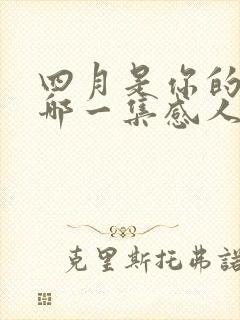 四月是你的
哪一集感人
克里斯托弗諾